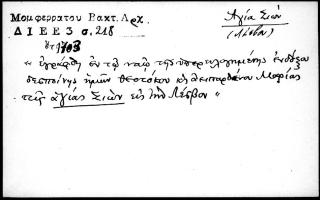 Μομφερρατου Ρακτ. Αρχ.
Αγία Σιών
ΔΙΕΕ 3 σ. 218
(Λέσβου)
έτ. 1703
« ἐγράφθη ἐν τῷ ναῷ τῆς ὑπερευλογημένης ἐνδόξου
δεσποίνης ἡμῶν Θεοτόκου κὴ ἀειπαρθένου Μαρίας
τῆς ἁγίας Σιὼν εἰς τὴν Λέσβον »